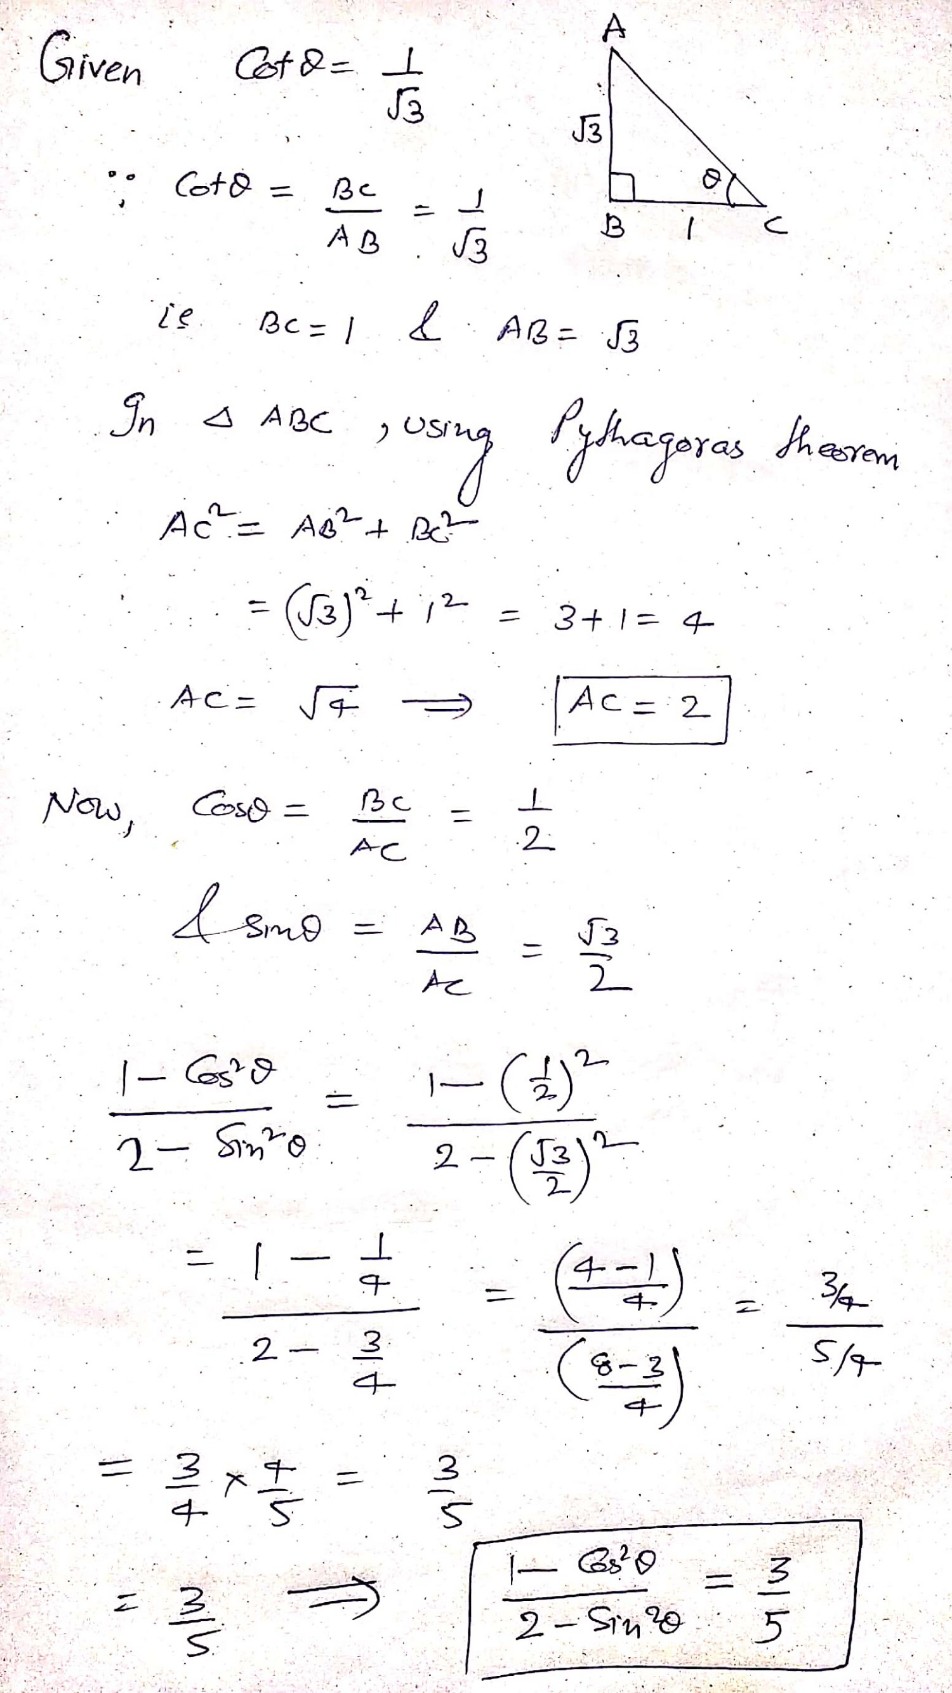 Given Cot θ = 1/√3
A
√3
θ
B 1 C
∵ Cot θ = BC/AB = 1/√3
ie BC = 1 & AB = √3
In △ ABC , using Pythagoras theorem
AC² = AB² + BC²
= (√3)² + 1² = 3 + 1 = 4
AC = √4 ⟹ AC = 2
Now, Cosθ = BC/AC = 1/2
& sinθ = AB/AC = √3/2
(1 - Cos²θ)/(2 - Sin²θ) = (1 - (1/2)²)/(2 - (√3/2)²)
= (1 - 1/4)/(2 - 3/4) = ((4-1)/4)/((8-3)/4) = (3/4)/(5/4)
= 3/4 × 4/5 = 3/5
= 3/5 ⟹ (1 - Cos²θ)/(2 - Sin²θ) = 3/5